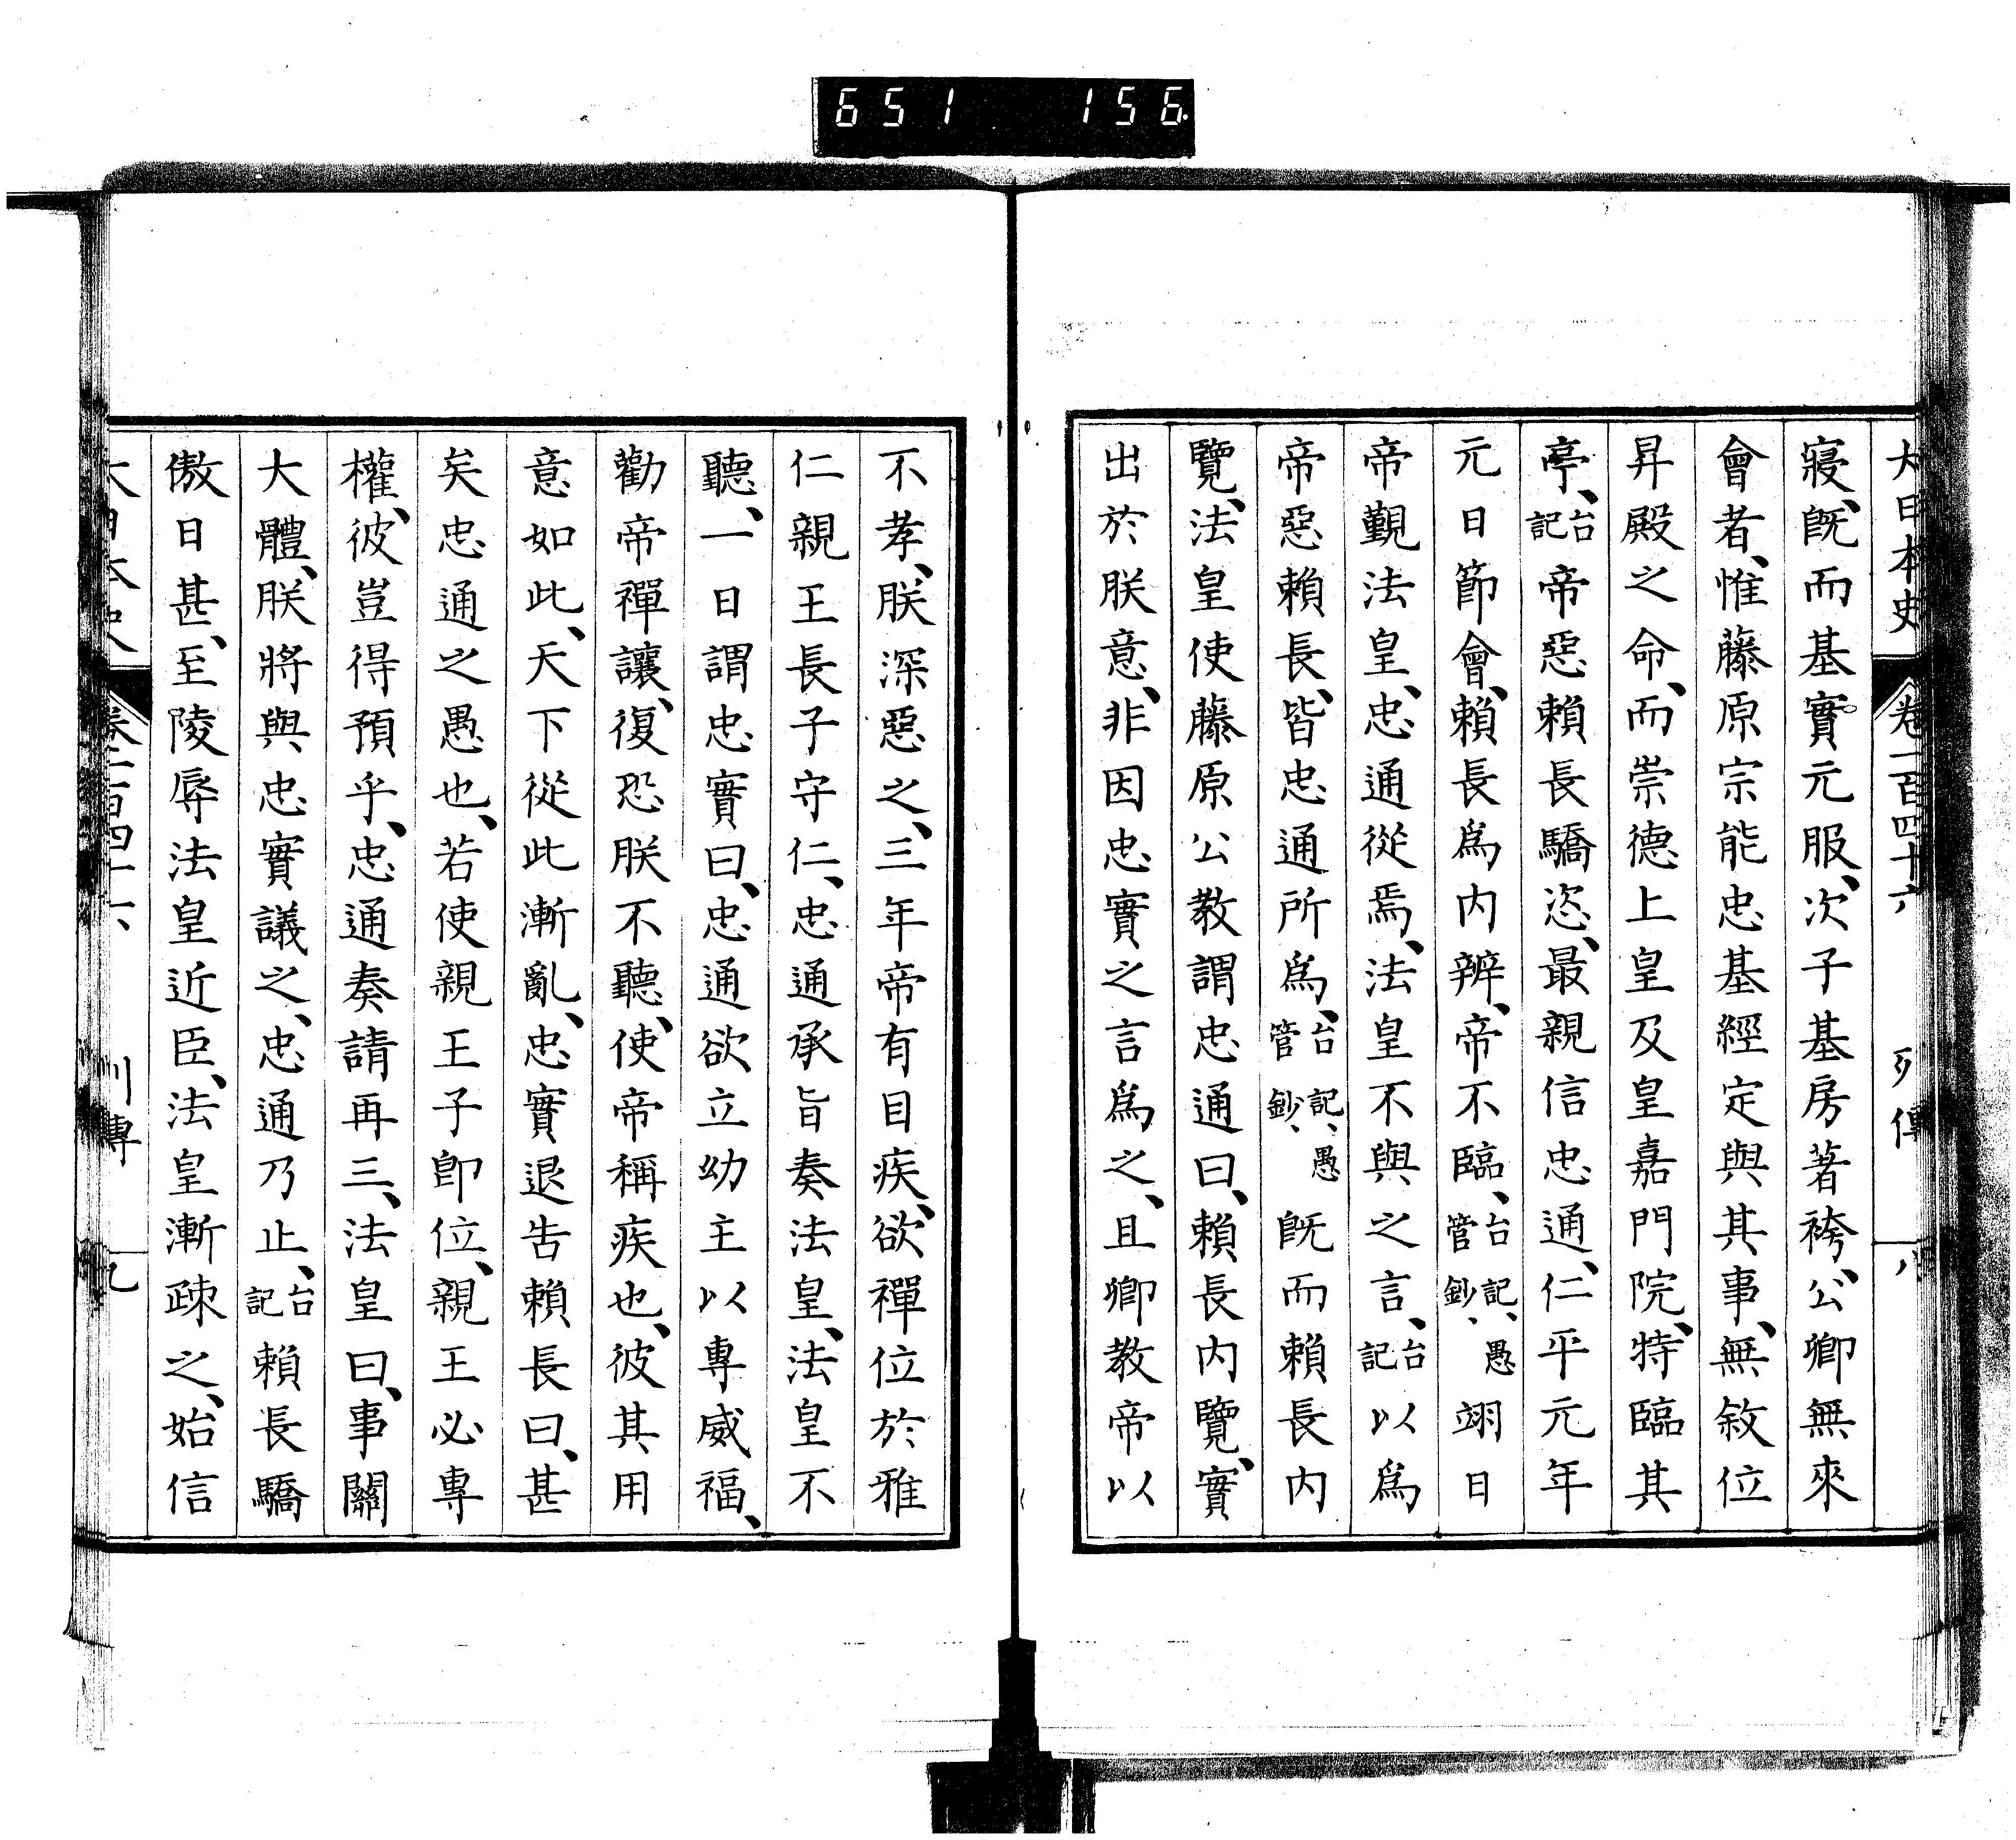 651 156
大日本史 卷一百四十六 列傳 八
寢、既而基實元服、次子基房著袴、公卿無來
會者、惟藤原宗能忠基經定與其事、無敘位
昇殿之命、而崇德上皇及皇嘉門院、特臨其
亭、台記帝惡賴長驕恣、最親信忠通、仁平元年
元日節會、賴長爲内辨、帝不臨、台記、愚管鈔、翊日
帝覲法皇、忠通從焉、法皇不與之言、台記以爲
帝惡賴長、皆忠通所爲、台記、愚管鈔、既而賴長内
覽、法皇使藤原公教謂忠通曰、賴長内覽、實
出於朕意、非因忠實之言爲之、且卿教帝以
不孝、朕深惡之、三年帝有目疾、欲禪位於雅
仁親王長子守仁、忠通承旨奏法皇、法皇不
聽、一日謂忠實曰、忠通欲立幼主以專威福、
勸帝禪讓、復恐朕不聽、使帝稱疾也、彼其用
意如此、天下從此漸亂、忠實退告賴長曰、甚
矣忠通之愚也、若使親王子卽位、親王必專
權、彼豈得預乎、忠通奏請再三、法皇曰、事關
大體、朕將與忠實議之、忠通乃止、台記賴長驕
傲日甚、至陵辱法皇近臣、法皇漸疎之、始信
大日本史 卷一百四十六 列傳 九